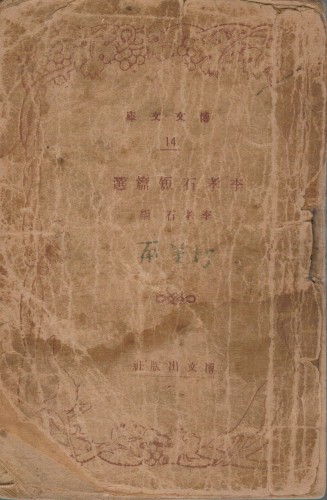 博文文庫
14
李孝石短篇選
李孝石著
博文出版社